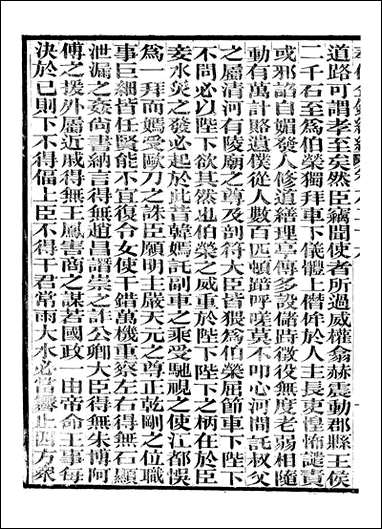 道路可謂孝至矣然臣竊聞使者所過威權翕赫震動郡縣王侯
二千石至爲伯榮獨拜車下儀體上僭侔於人主長吏惶怖譴責
或邪諂自媚發人修道繕理亭傳多設儲峙徵役無度老弱相隨
動有萬計賂遺僕從人數百匹頓踣呼嗟莫不叩心河間託叔父
之屬清河有陵廟之尊及剖符大臣皆猥爲伯榮屈節車下陛下
不問必以陛下欲其然也伯榮之威重於陛下陛下之柄在於臣
妾水災之發必起於此昔韓嫣託副車之乘受馳視之使江都悞
爲一拜而嫣受歐刀之誅臣願明主嚴天元之尊正乾剛之位職
事巨細皆任賢能不宜復令女使干錯萬機重察左右得無石顯
泄漏之姦尙書納言得無趙昌譖崇之詐公卿大臣得無朱博阿
傅之援外屬近戚得無王鳳害商之謀若國政一由帝命王事每
決於已則下不得偪上臣不得干君常雨大水必當霽止四方衆